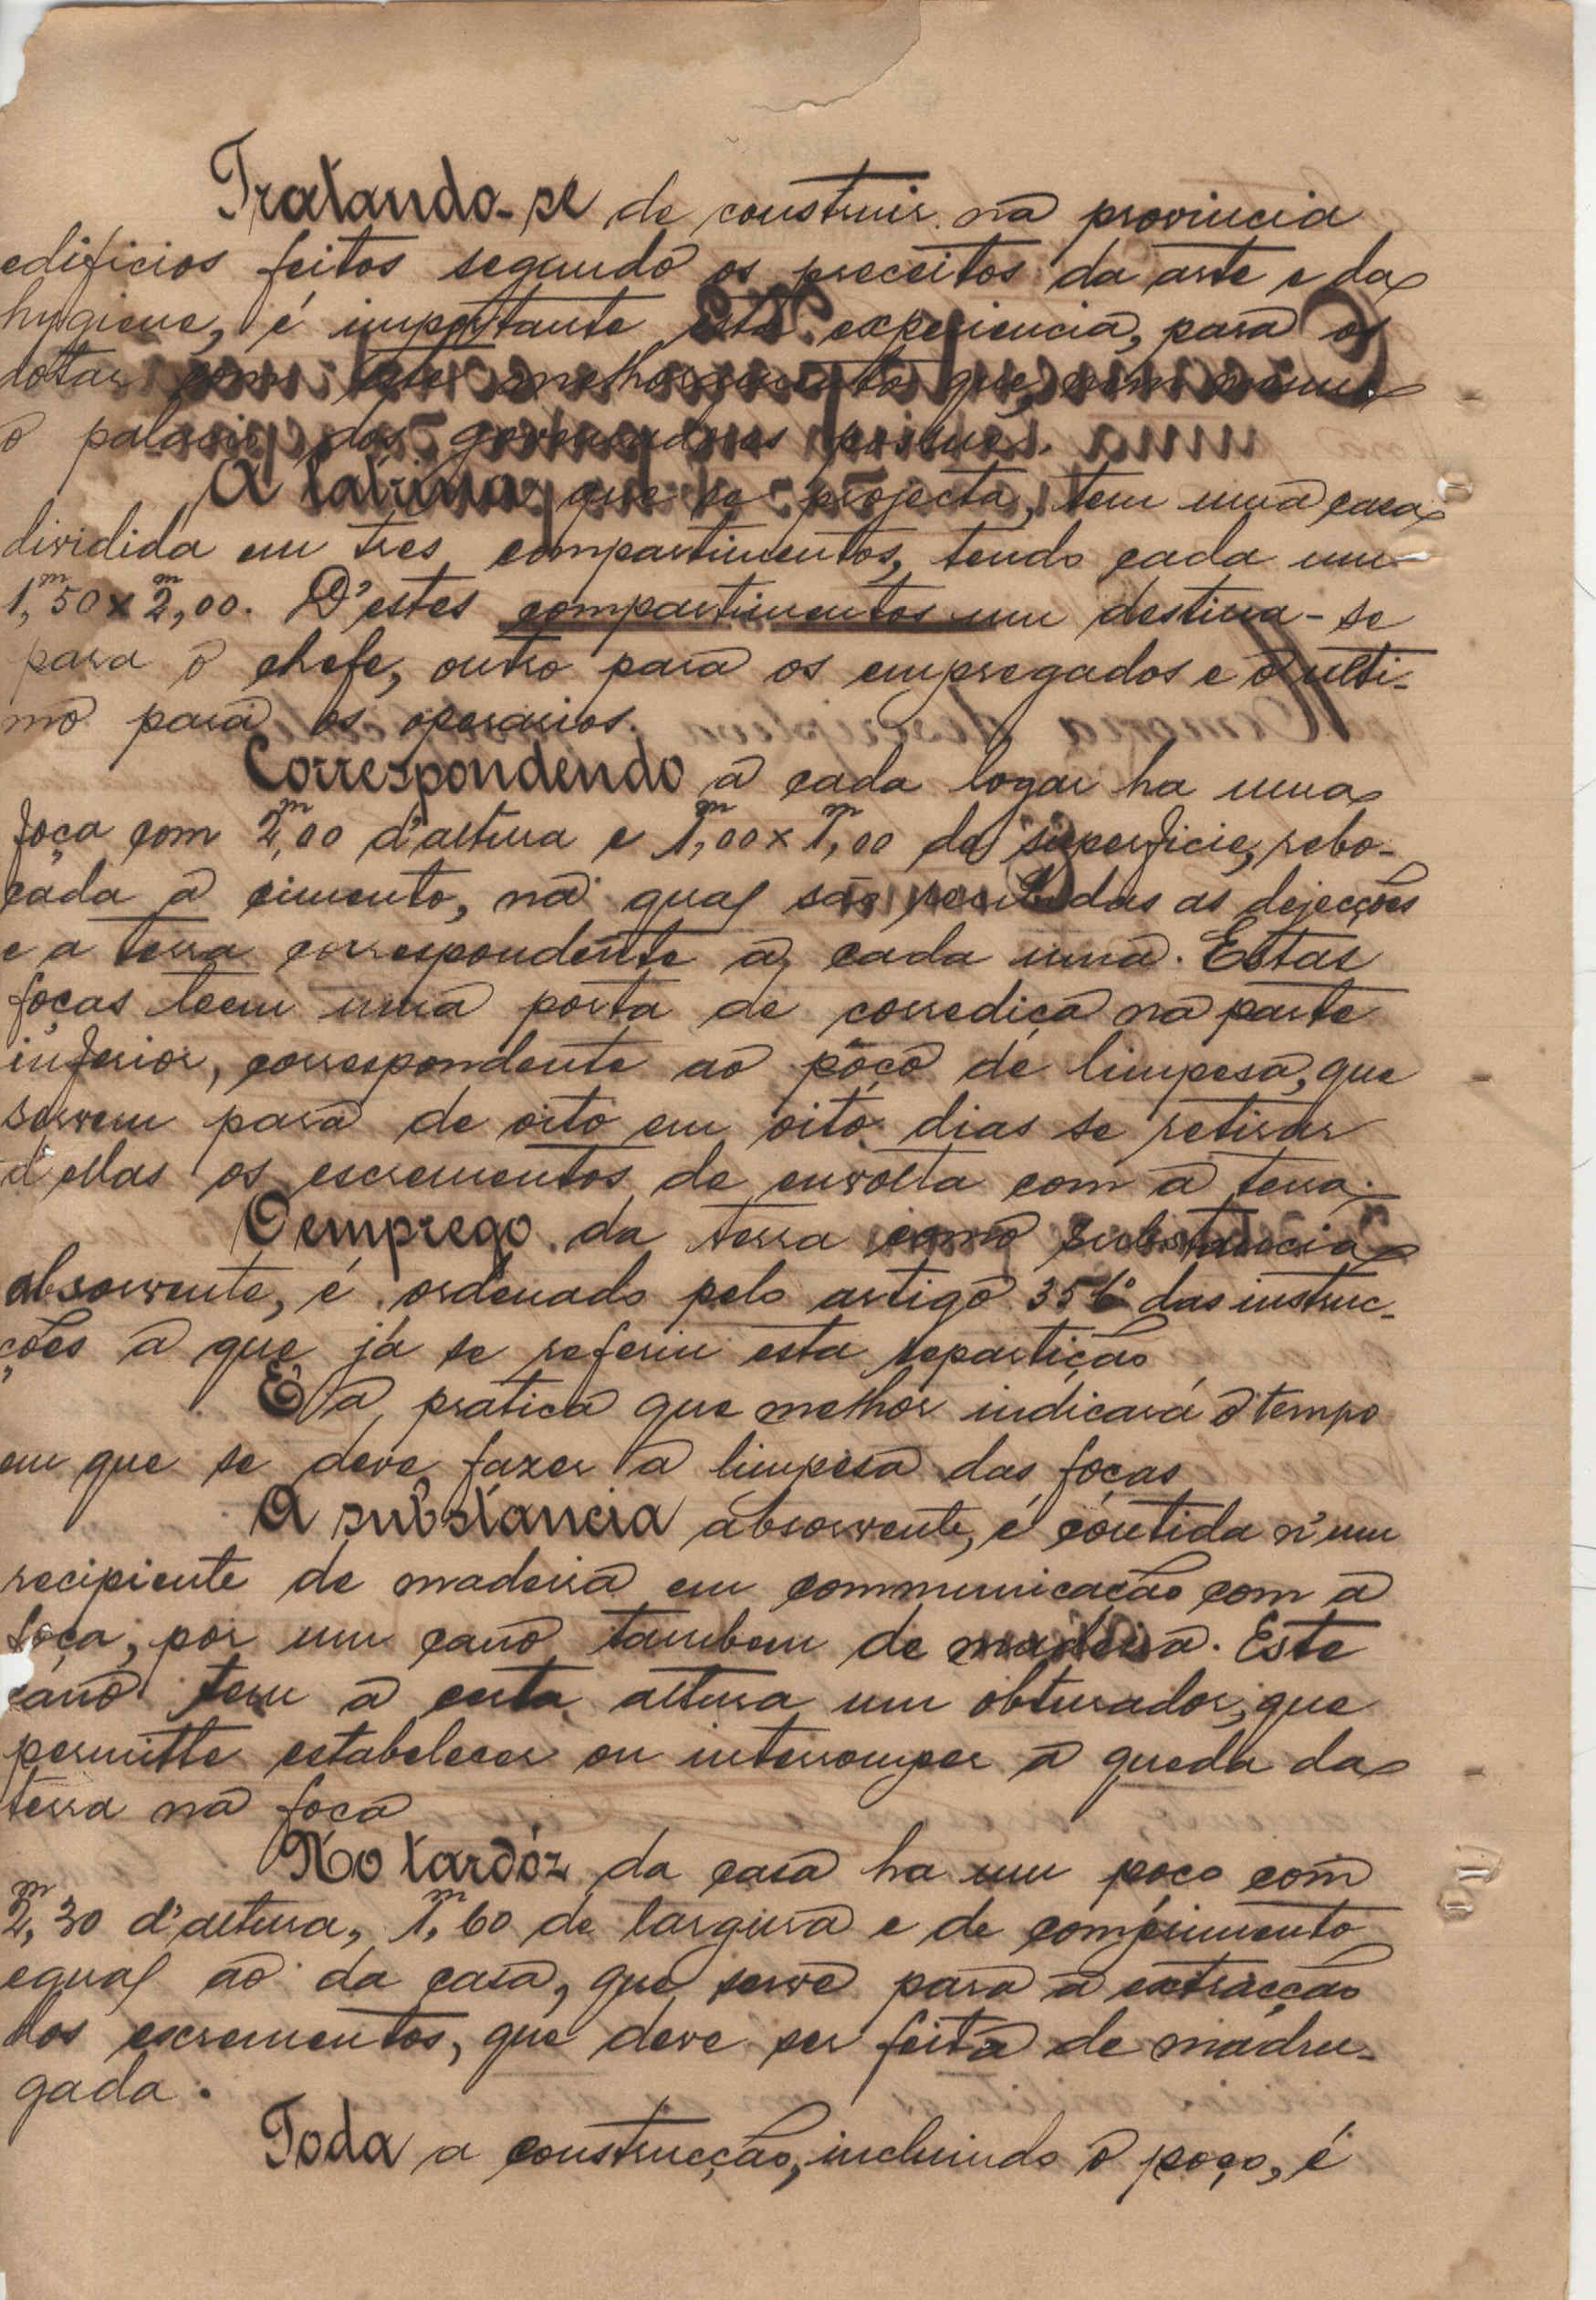 Tratando-se de construir na provincia
edificios feitos segundo os preceitos da arte e da
hygiene, é importante esta experiencia, para os
dotar com este melhoramento que, nem mesmo
o palacio dos governadores possue.
A latrina que se projecta, tem uma casa
dividida em tres compartimentos, tendo cada um
1,ᵐ50 x 2,ᵐ00. D'estes compartimentos um destina-se
para o chefe, outro para os empregados e o ulti-
mo para os operarios.
Correspondendo a cada logar ha uma
foça com 2,ᵐ00 d'altura e 1,ᵐ00 x 1,ᵐ00 de superficie, rebo-
cada a cimento, na qual são recebidas as dejecções
e a terra correspondente a cada uma. Estas
foças teem uma porta de corrediça na parte
inferior, correspondente ao pôço de limpesa, que
servem para de oito em oito dias se retirar
d'ellas os escrementos de envolta com a terra.
O emprego da terra como substancia
absorvente, é ordenado pelo artigo 356º das instruc-
ções a que já se referiu esta repartição
É a pratica que melhor indicará o tempo
em que se deve fazer a limpesa das foças
A substancia absorvente, é contida n'um
recipiente de madeira em communicação com a
foça, por um cano tambem de madeira. Este
cano tem a certa altura um obturador, que
permitte estabelecer ou interromper a queda da
terra na foça
No tardóz da casa ha um poço com
2,ᵐ30 d'altura, 1,ᵐ60 de largura e de comprimento
egual ao da casa, que serve para a extracção
dos escrementos, que deve ser feita de madru-
gada.
Toda a construcção, incluindo o poço, é